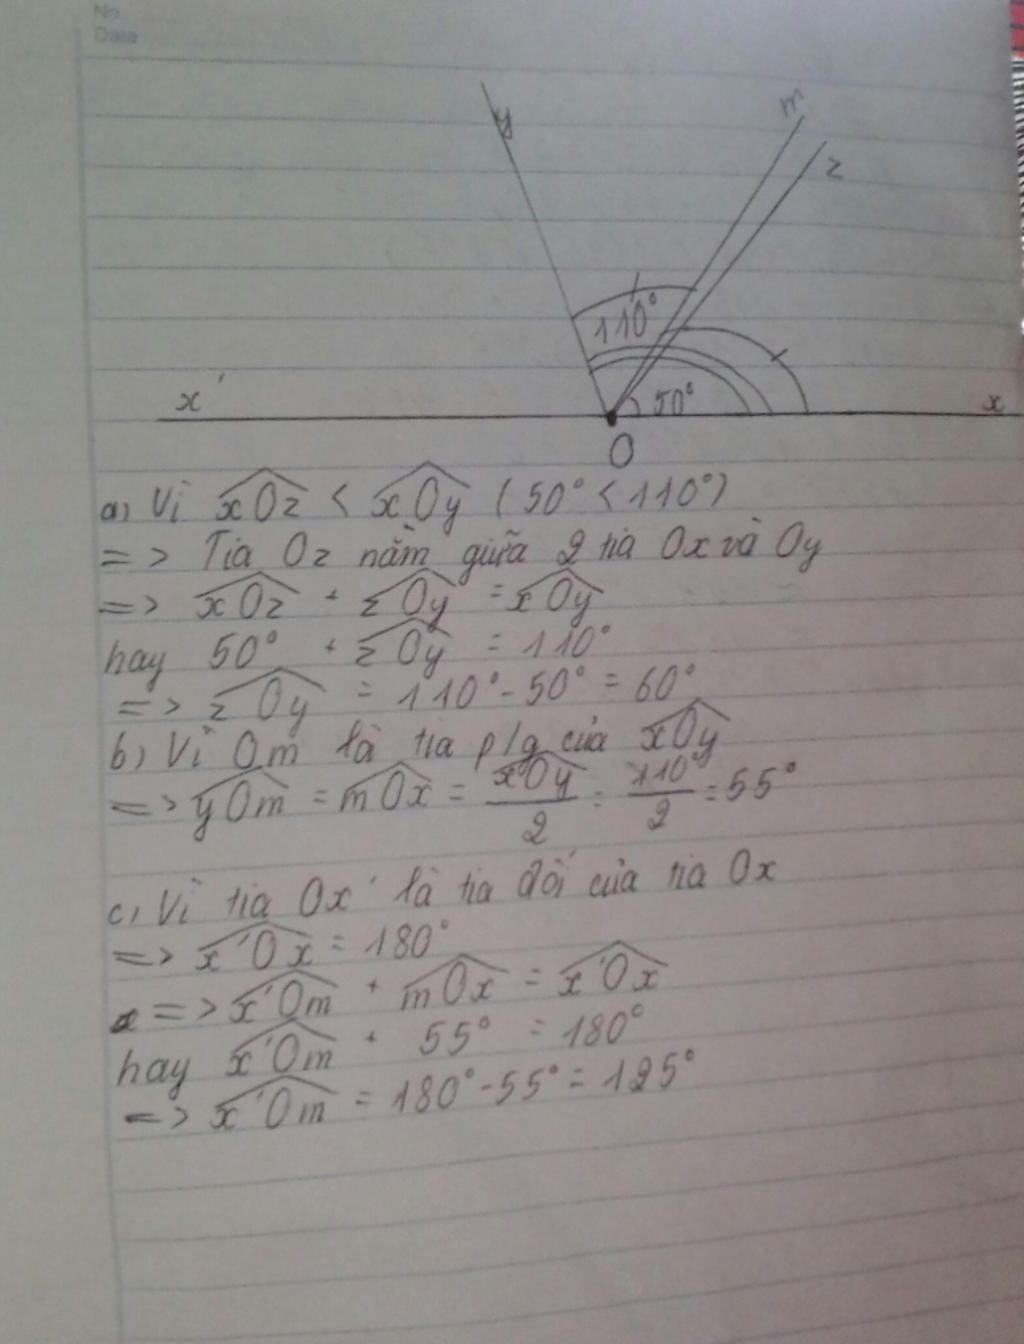 No.
Date
y
m
z
110°
50°
x'
x
O
a) Vì xOz < xOy (50° < 110°)
=> Tia Oz nằm giữa 2 tia Ox và Oy
=> xOz + zOy = xOy
hay 50° + zOy = 110°
=> zOy = 110° - 50° = 60°
b) Vì Om là tia p/g của xOy
=> yOm = mOx = xOy/2 = 110°/2 = 55°
c) Vì tia Ox' là tia đối của tia Ox
=> x'Ox = 180°
=> x'Om + mOx = x'Ox
hay x'Om + 55° = 180°
=> x'Om = 180° - 55° = 125°